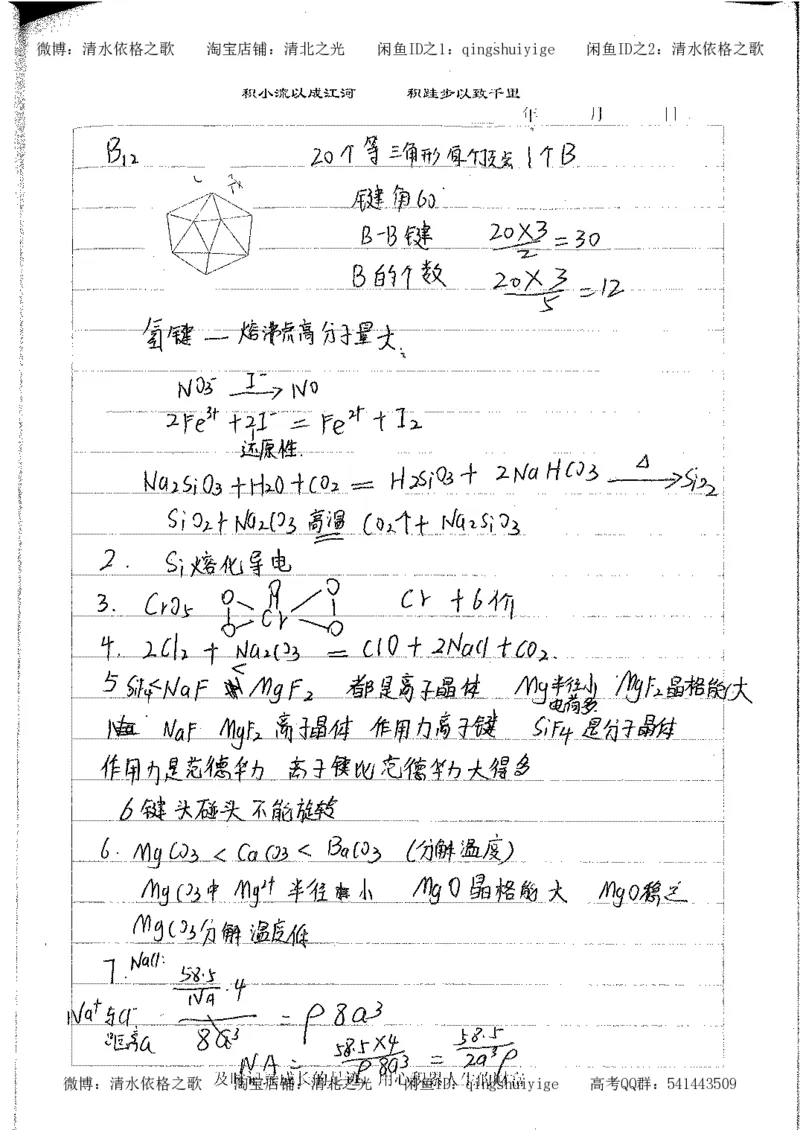 微博：清水依格之歌 淘宝店铺：清北之光 闲鱼ID之1：qingshuiyige 闲鱼ID之2：清水依格之歌
积小流以成江河 积跬步以致千里
年 月 日
B12 20个等三角形每个顶点1个B
键角60°
B-B键 20×3/2 = 30
B的个数 20×3/5 = 12
氢键 — 熔沸点高分子量大
NO3⁻ —I⁻→ NO
2Fe³⁺ + 2I⁻ = Fe²⁺ + I2
还原性.
Na2SiO3 + H2O + CO2 = H2SiO3 + 2NaHCO3 —△→ SiO2
SiO2 + Na2CO3 高温 CO2↑ + Na2SiO3
2. Si熔化导电
3. CrO5 O O O Cr O O Cr +6价
4. 2Cl2 + Na2CO3 = ClO + 2NaCl + CO2.
5 SiF4 < NaF < MgF2 都是离子晶体 Mg半径小 电荷多 MgF2晶格能大
NaF MgF2 离子晶体 作用力离子键 SiF4是分子晶体
作用力是范德华力 离子键比范德华力大得多
6键头碰头不能旋转
6. MgCO3 < CaCO3 < BaCO3 (分解温度)
MgCO3中 Mg²⁺半径小 MgO晶格能大 MgO稳定
MgCO3分解温度低
7. NaCl:
Na⁺与Cl⁻距离a 58.5/NA · 4 / 8a³ = ρ 8a³
NA = 58.5×4/ρ8a³ = 58.5/2a³ρ
及时记录成长的足迹 用心积累人生的财富
微博：清水依格之歌 淘宝店铺：清北之光 闲鱼ID之1：qingshuiyige 高考QQ群：541443509